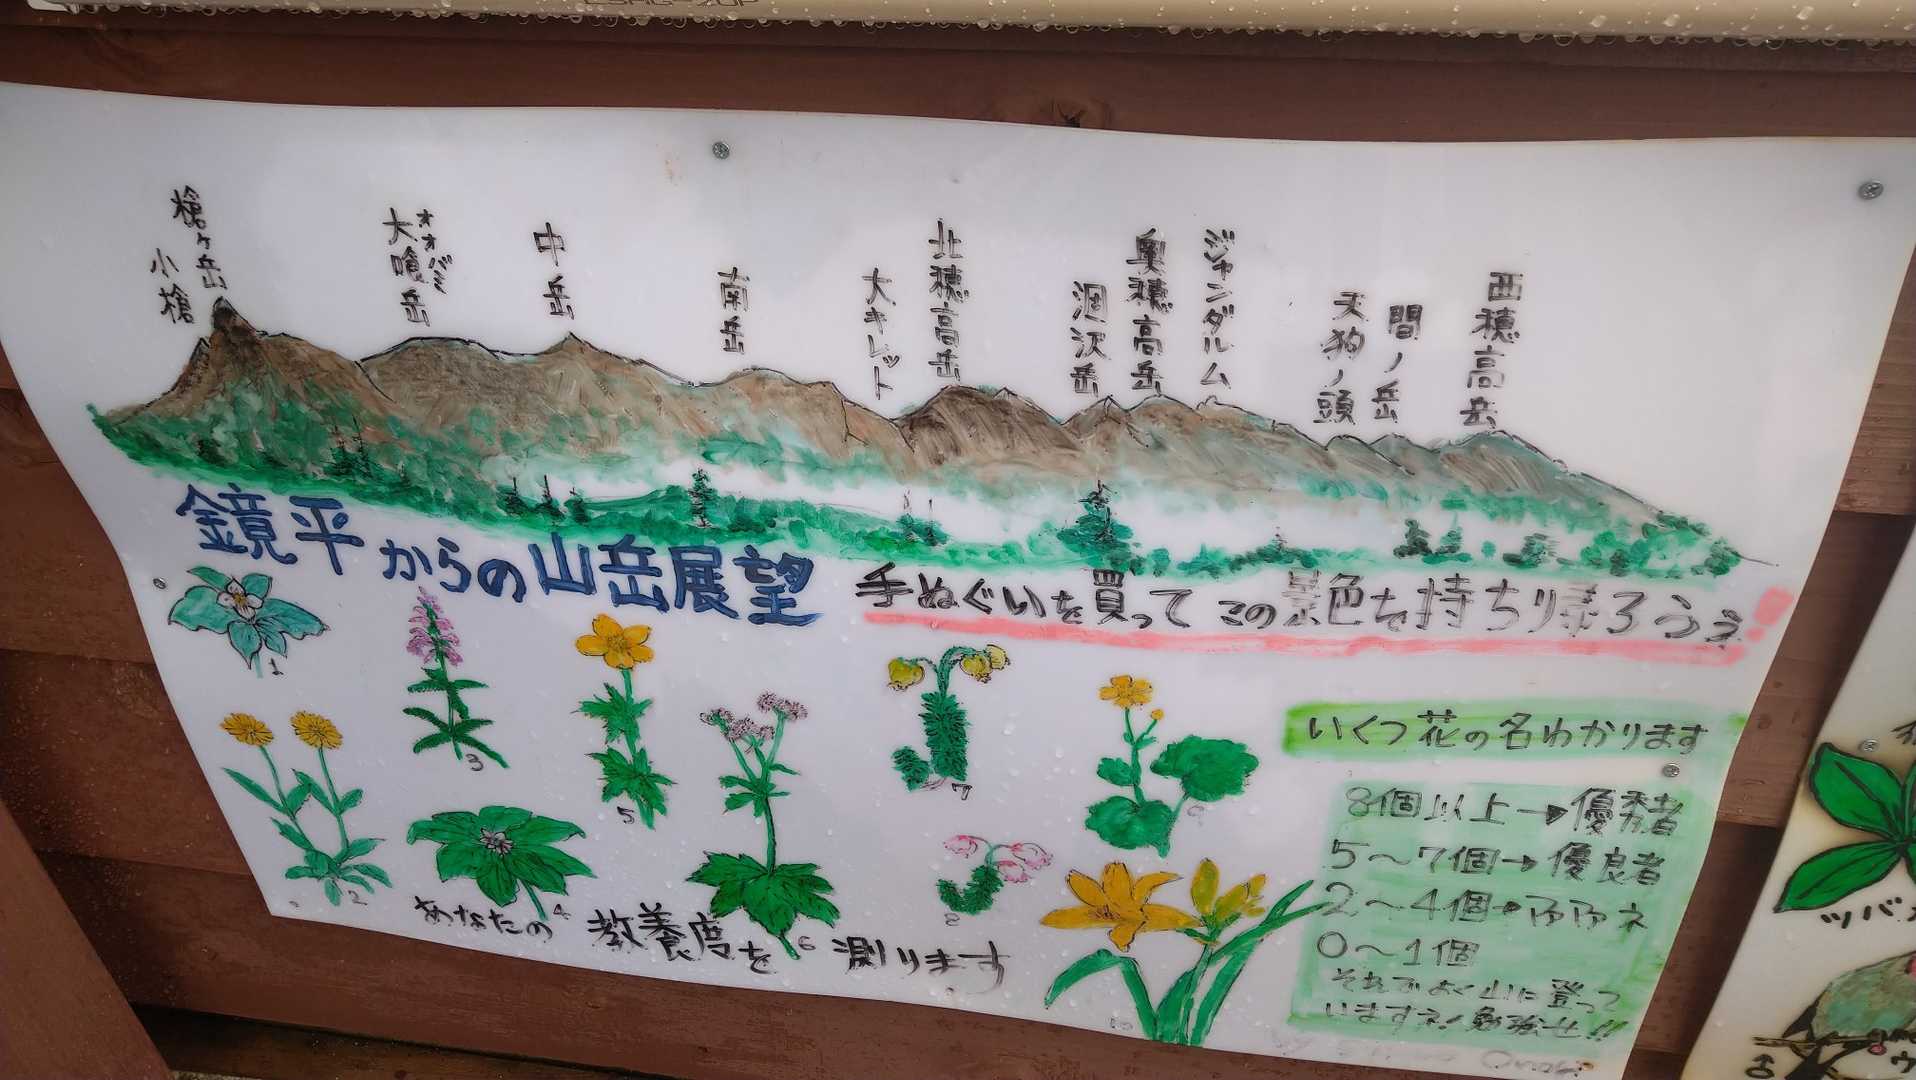 槍ヶ岳
小槍
オオバミ
大喰岳
中岳
南岳
大キレット
北穂高岳
涸沢岳
奥穂高岳
ジャンダルム
天狗ノ頭
間ノ岳
西穂高岳
鏡平からの山岳展望
手ぬぐいを買ってこの景色を持ち帰ろうぅ!
1
2
3
4
5
6
7
8
9
10
あなたの教養度を測ります
いくつ花の名わかります
8個以上→優秀者
5〜7個→優良者
2〜4個→
0〜1個
それでよく山に登って
いますネ!勉強せ!!
ツバ
ウ
♂